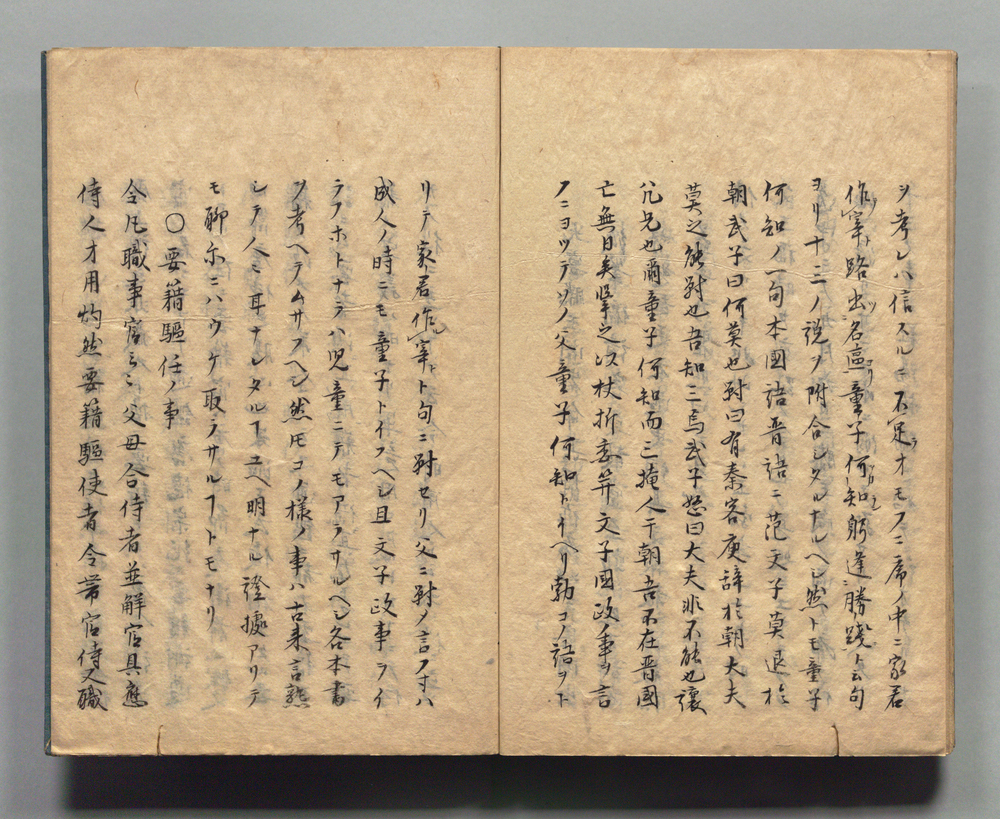 ヲ考レハ信スルニ不足ラオモフニ席ノ中ニ家君
作宰路出名區童子何知躬逢勝踐ト云句
ヨリ十二ノ説ヲ附合シタルナルヘシ然トモ童子
何知ノ一句本國語晋語ニ范文子莫退於
朝武子曰何莫也對曰有秦客庾辞於朝大夫
莫之能對也吾知三焉武子怒曰大夫非不能也讓
父兄也爾童子何知而三掩人于朝吾不在晋國
亡無日矣撃之以杖折委笄文子國政ノ事ヲ言
フニヨツテソノ父童子何知トイヘリ勃コノ語ヲト
リテ家君作宰ト句ニ對セリ父ニ對ノ言フ寸ハ
成人ノ時ニモ童子トイフヘシ且文子政事ヲイ
ラフホトナラハ児童ニテモアラサルヘシ各本書
ヲ考ヘテムサスヘシ然モコノ様ノ事ハ古来言熟
シテ人ミ耳ナレタルヿユヘ明ナル證據アリテ
モ聊尓ニハウケ取ラサルヿトモナリ
〇要籍驅任ノ事
令凡職事官云々父母合侍者並解官具應
侍人才用灼然要籍驅使者令帶官侍又職